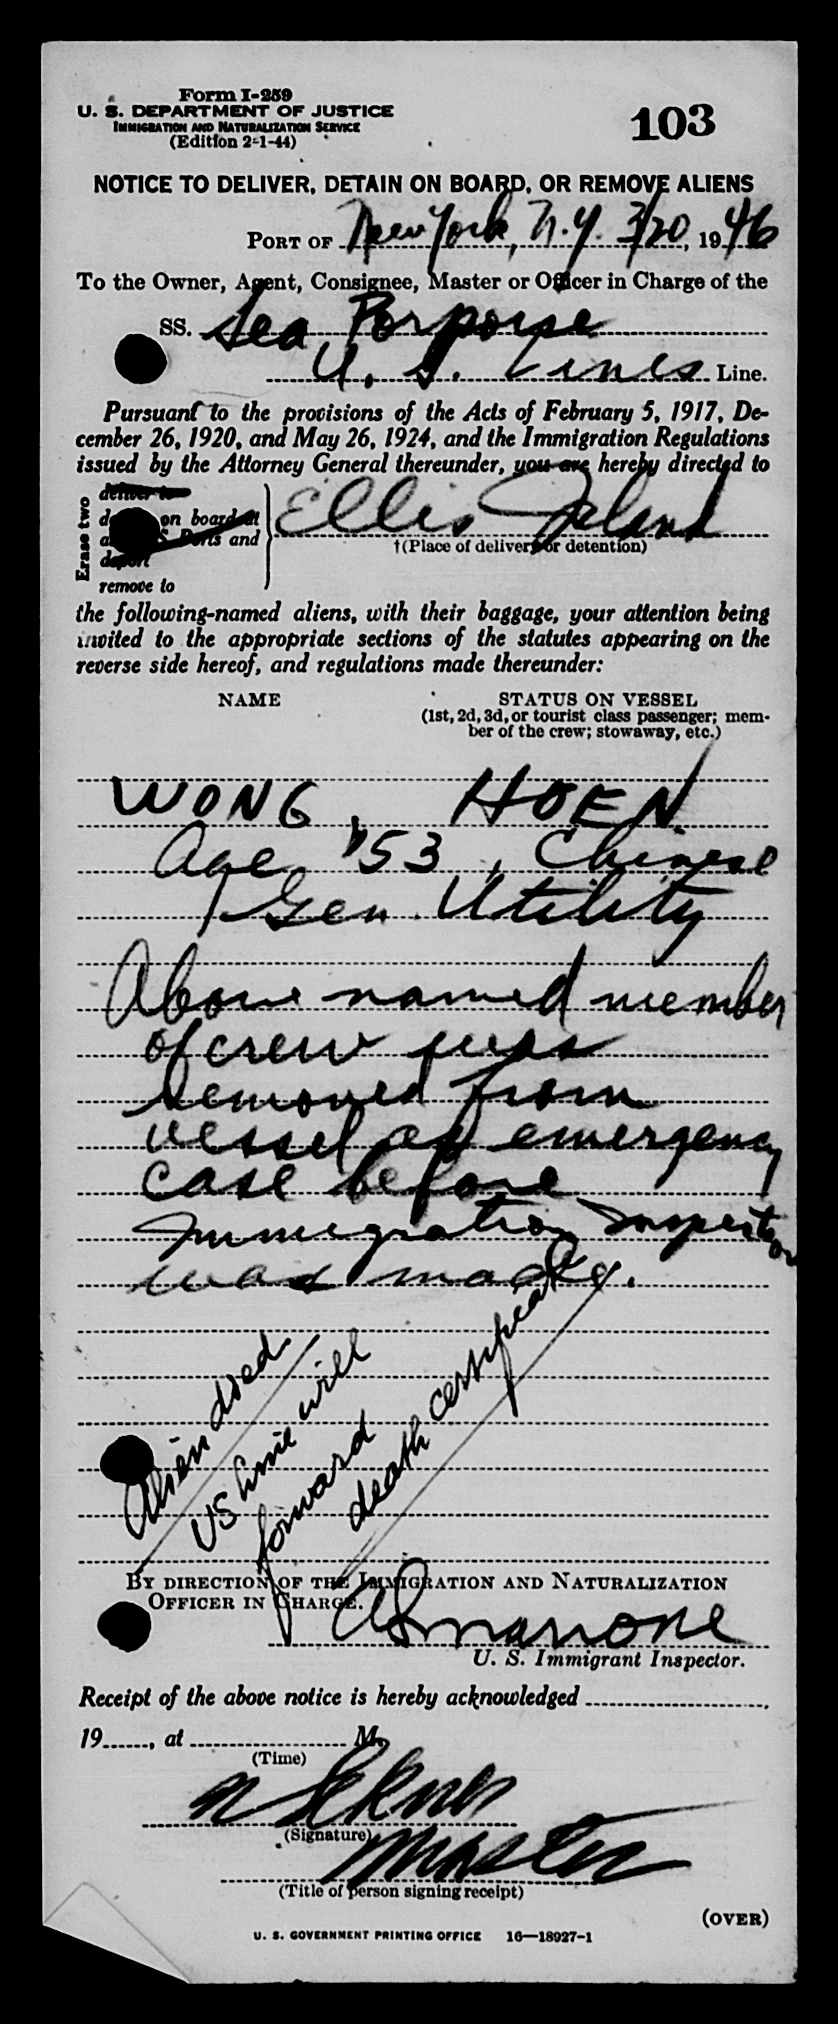 Form I-259
U. S. DEPARTMENT OF JUSTICE
IMMIGRATION AND NATURALIZATION SERVICE
(Edition 2-1-44)
103
NOTICE TO DELIVER, DETAIN ON BOARD, OR REMOVE ALIENS
PORT OF New York, N.Y. 3/20, 1946
To the Owner, Agent, Consignee, Master or Officer in Charge of the
SS. Sea Porpoise
U. S. Lines Line.
Pursuant to the provisions of the Acts of February 5, 1917, De-
cember 26, 1920, and May 26, 1924, and the Immigration Regulations
issued by the Attorney General thereunder, you are hereby directed to
Erase two
deliver to
on board at
S. Ports and
deport
remove to
Ellis Island
†(Place of delivery or detention)
the following-named aliens, with their baggage, your attention being
invited to the appropriate sections of the statutes appearing on the
reverse side hereof, and regulations made thereunder:
NAME
STATUS ON VESSEL
(1st, 2d, 3d, or tourist class passenger; mem-
ber of the crew; stowaway, etc.)
WONG, HOEN
Age 53, Chinese
Gen. Utility
Above named member
of crew was
removed from
vessel as emergency
case before
Immigration Inspection
was made.
Alien died
US Line will
forward
death certificate
BY DIRECTION OF THE IMMIGRATION AND NATURALIZATION
OFFICER IN CHARGE.
U. S. Immigrant Inspector.
Receipt of the above notice is hereby acknowledged
19 , at M.
(Time)
(Signature)
Master
(Title of person signing receipt)
(OVER)
U. S. GOVERNMENT PRINTING OFFICE 16—18927-1